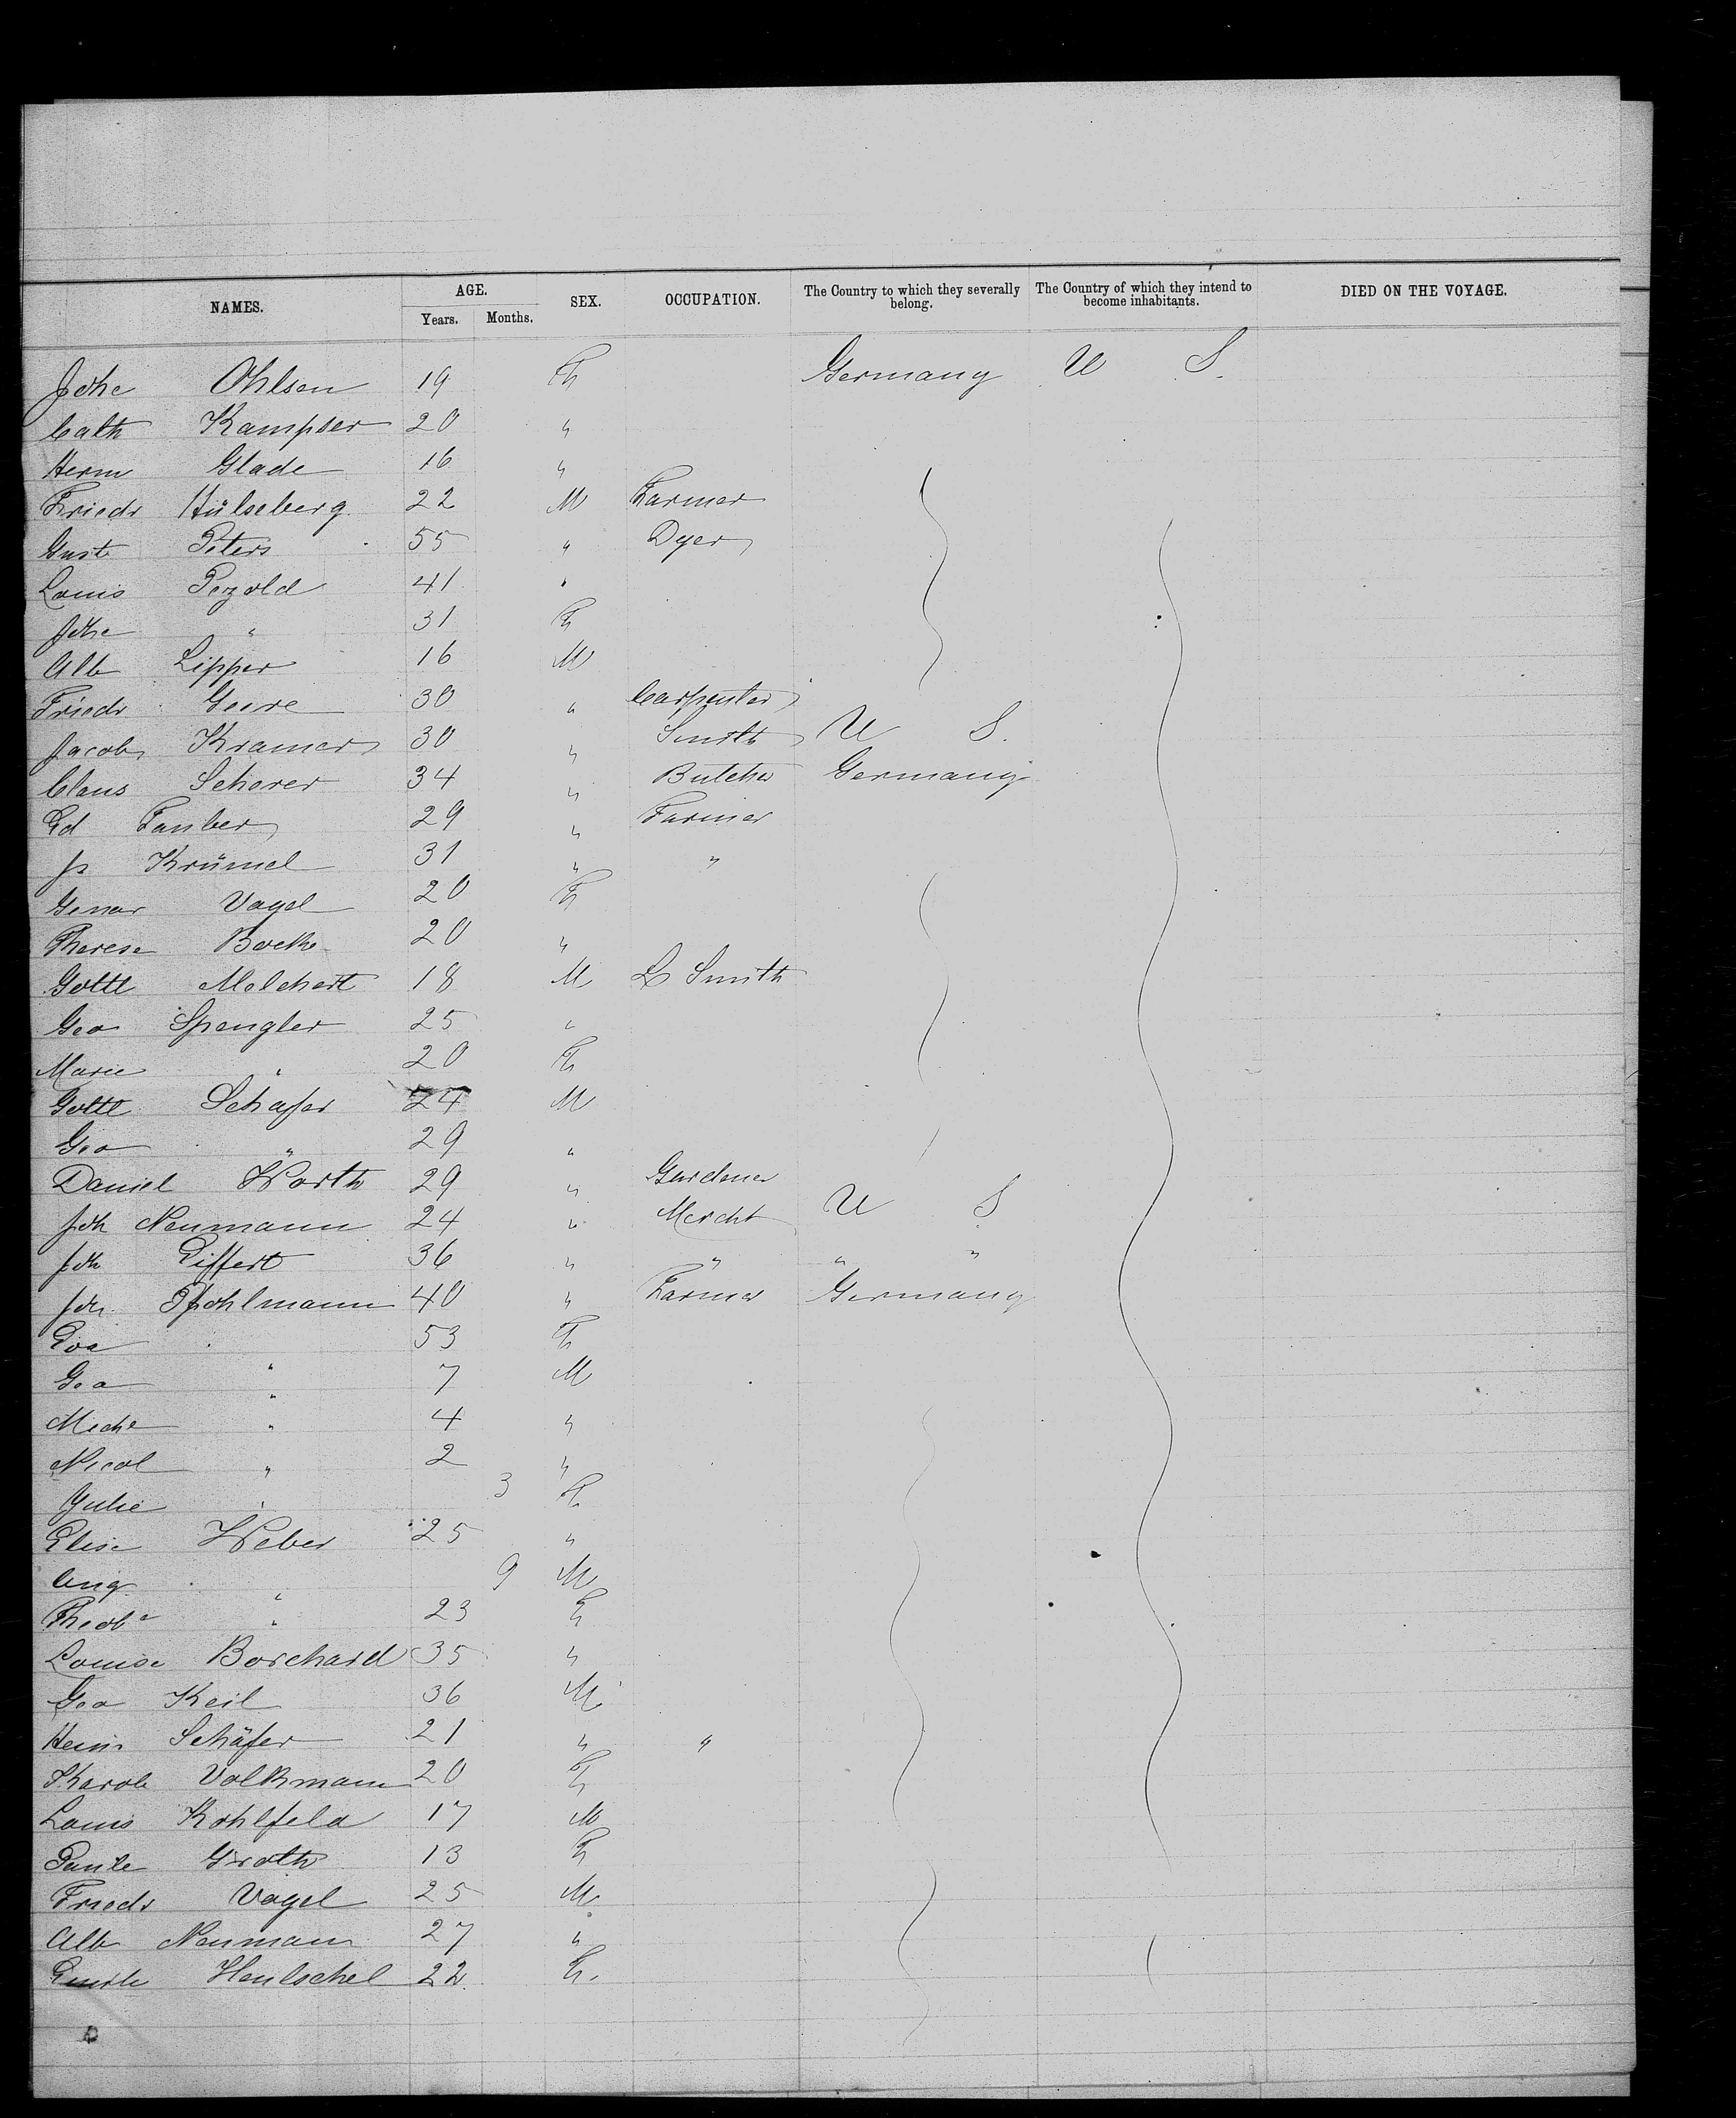 NAMES. AGE. Years. Months. SEX. OCCUPATION. The Country to which they severally belong. The Country of which they intend to become inhabitants. DIED ON THE VOYAGE.
Johe Ohlsen 19 F Germany U S.
Cath Kampser 20 "
Herm Glade 16 "
Friedr Hülseberg 22 M Farmer
Gust Peters 55 " Dyer
Louis Pezold 41 "
Johe " 31 F
Alb Lipper 16 M
Friedr Geere 30 " Carpenter
Jacob Kramer 30 " Smith U S.
Claus Scherer 34 " Butcher Germany
Ed Fauber 29 " Farmer
Js Krümel 31 " "
Vogel 20 F
Therese Bocke 20 "
Gottl Melchert 18 M L Smith
Geo Spengler 25 "
Marie " 20 F
Gottl Schafer 24 M
Geo " 29 "
Daniel Worth 29 " Gardener
Joh Neumann 24 " Mercht U S
Joh Eiffert 36 " " " "
Joh Pfohlmann 40 " Farmer Germany
Eva " 53 F
Geo " 7 M
Mich " 4 "
Nicol " 2 "
Julie " 3 F
Elise Weber 25 "
Aug " 9 M
Theob " 23 F
Louise Borchard 35 "
Geo Keil 36 M
Heinr Schäfer 21 " "
Karol Volkmann 20 F
Louis Kohlfeld 17 M
Paule Groth 13 F
Friedr Vogel 25 M
Alb Neumann 27 "
Emile Hentschel 22 F.